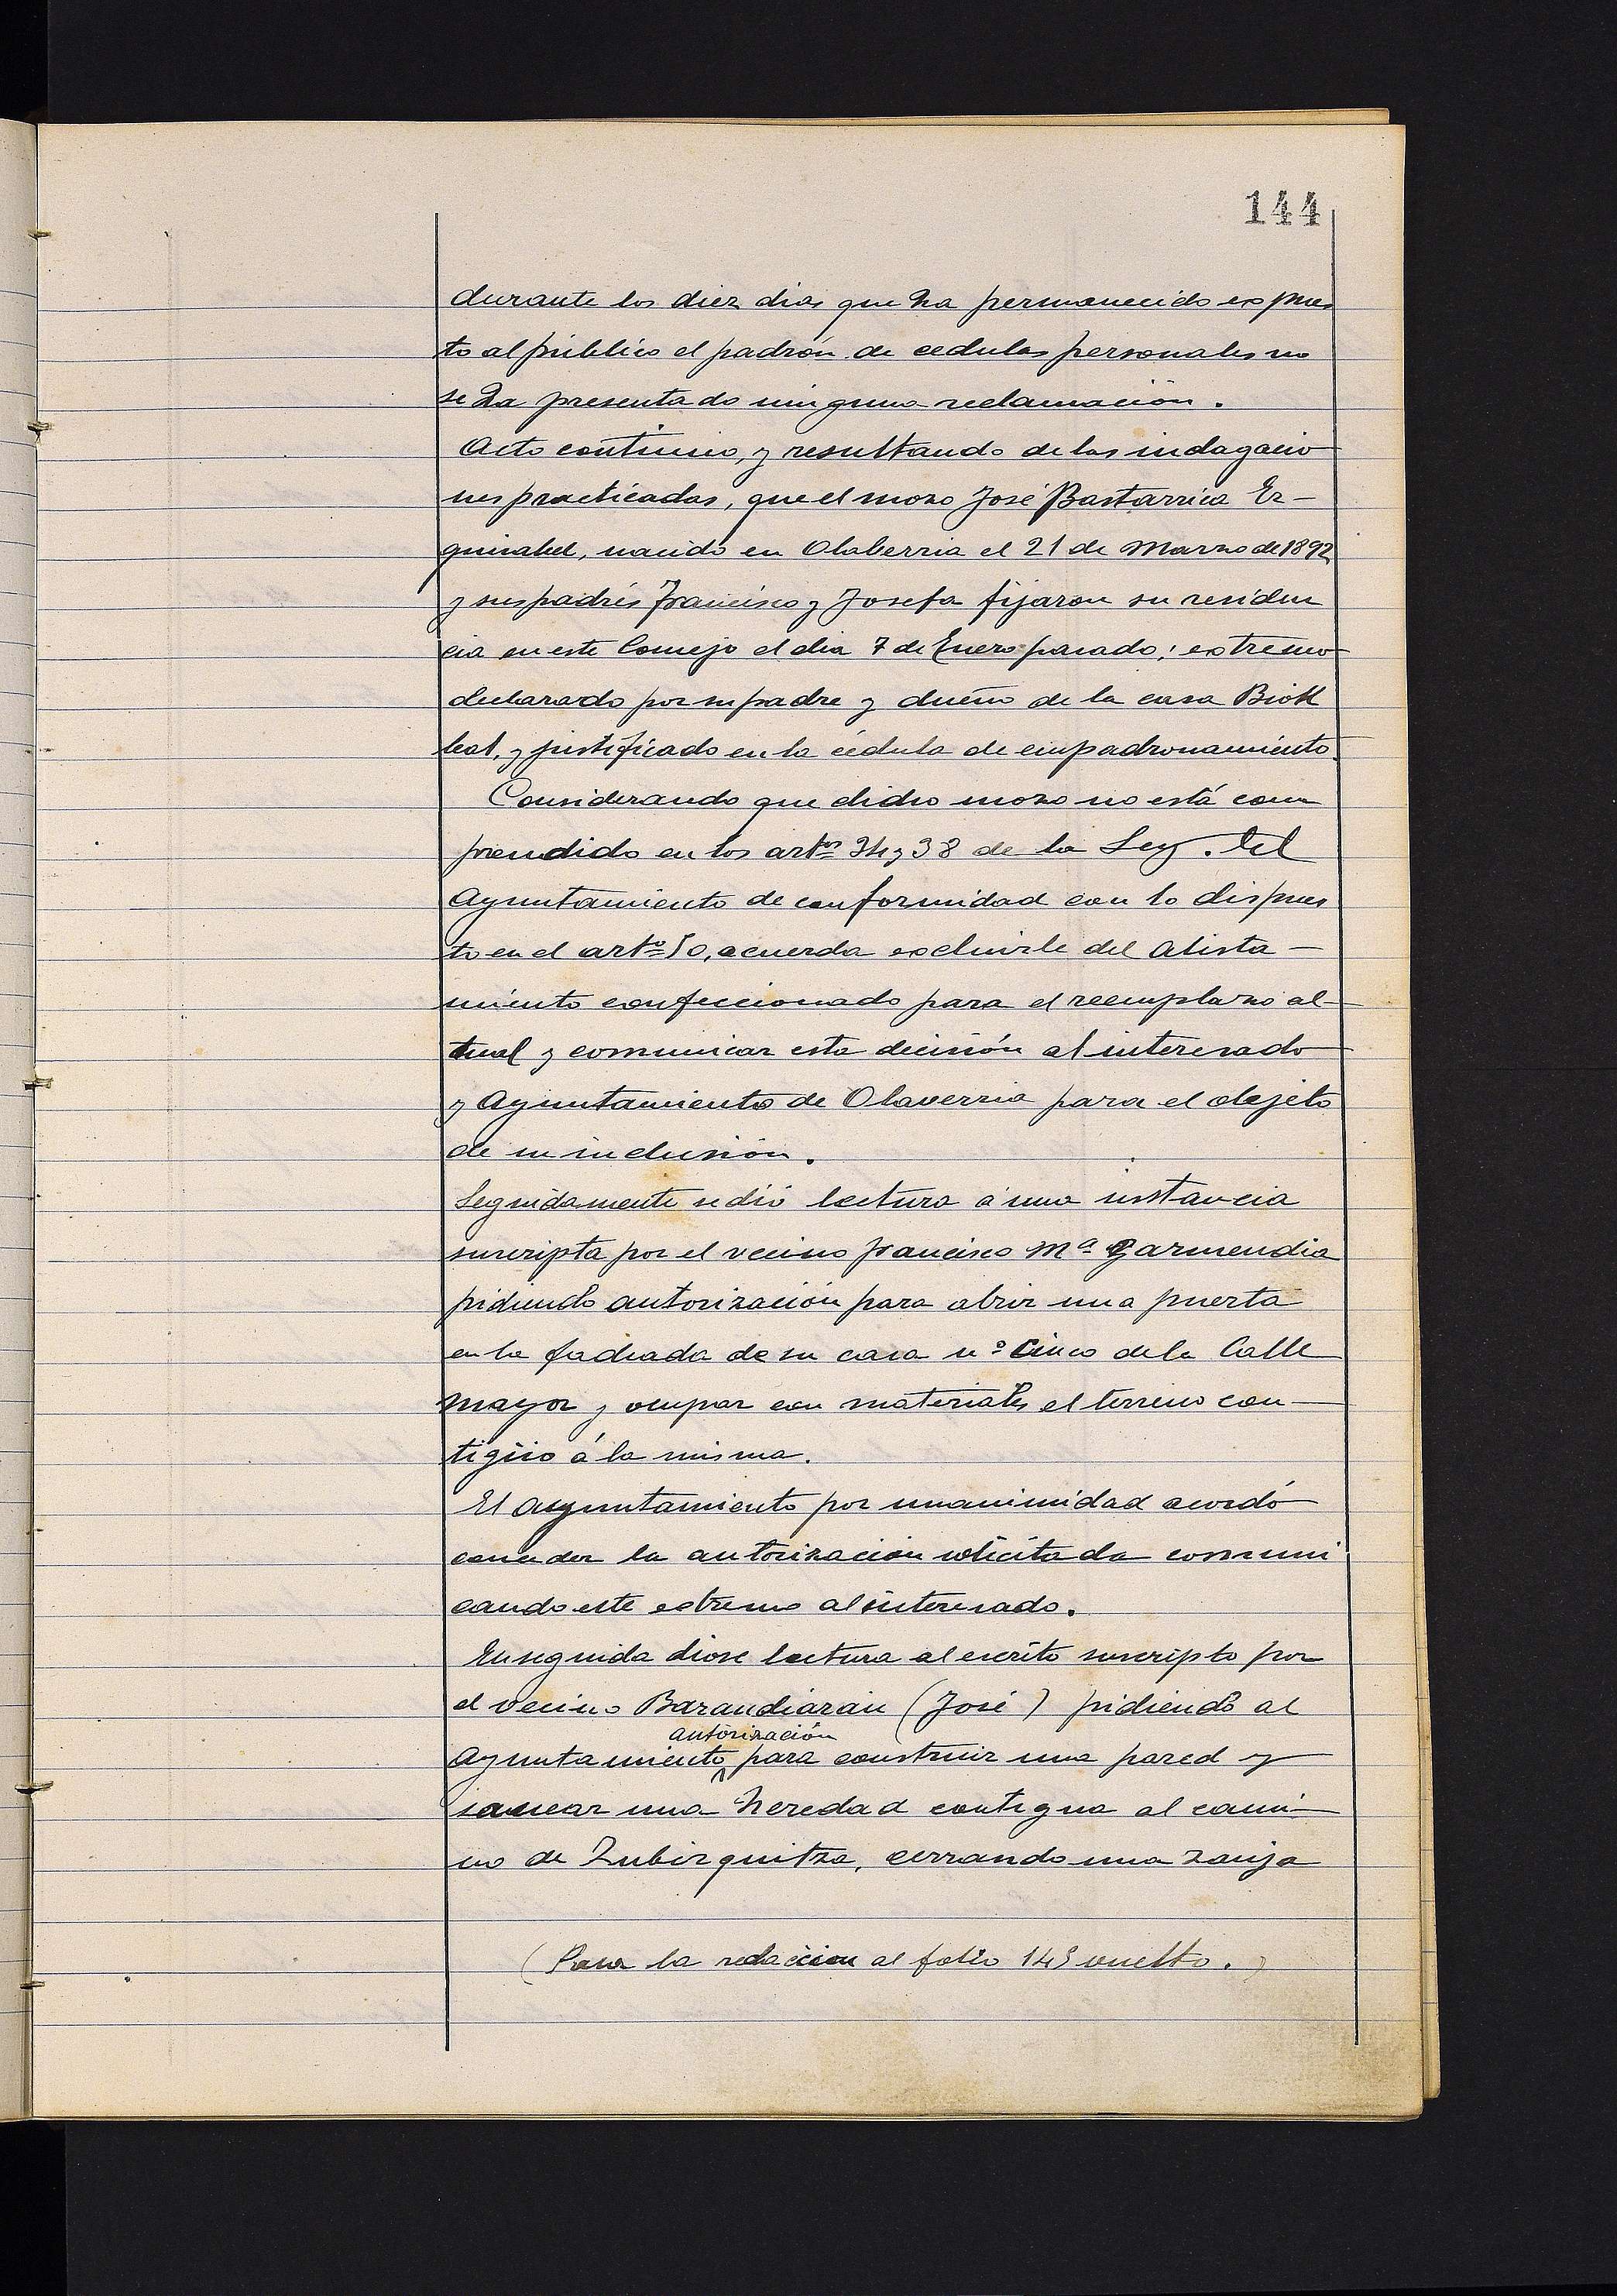 144
durante los diez dias que ha permanecido expues
to al público el padrón de cedulas personales no
se ha presentado ninguna reclamación.
Acto continuo, y resultando de las indagacio
nes practicadas, que el mozo José Bastarrica Ez-
quisabel, nacido en Olaberria el 21 de Marzo de 1892
y sus padres Francisco y Josefa fijaron su residen
cia en este Concejo el dia 7 de Enero pasado; extremo
declarado por su padre y dueño de la casa
y justificado en la cédula de empadronamiento.
Considerando que dicho mozo no está com
prendido en los artos 34 y 38 de la Ley. El
Ayuntamiento de conformidad con lo dispues
to en el arto 50, acuerda excluirle del alista-
miento confeccionado para el reemplazo ac
tual y comunicar esta decisión al interesado
y Ayuntamiento de Olaverria para el objeto
de su inclusión.
Seguidamente se dió lectura á una instancia
suscripta por el vecino Francisco Mª Garmendia
pidiendo autorización para abrir una puerta
en la fachada de su casa nº Cinco de la Calle
Mayor y ocupar con materiales el terreno con-
tigüo á la misma.
El Ayuntamiento por unanimidad acordó
conceder la autorización solicitada comuni
cando este extremo al interesado.
Enseguida diose lectura al escrito suscripto por
el vecino Barandiarán (José) pidiendo al
autorización
Ayuntamiento para construir una pared y
sanear una heredad contigua al cami-
no de Zubizquitza, cerrando una zanja
(Pasa la redacción al folio 145 vuelto.)